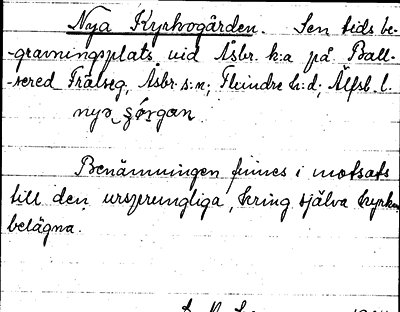 Nya Kyrkogården. Sen tids be-
-gravningsplats vid Åsbr. k:a på Ball-
-sered Frälseg, Åsbr. s:n; Flundre h:d; Älfsb. l.
nyə
Benämningen finnes i motsats
till den ursprungliga, kring själva kyrkan
belägna.